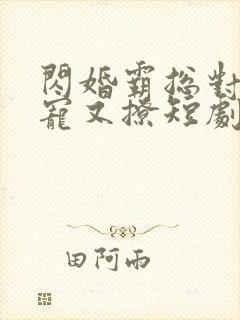 閃婚霸總對
寵又撩短劇
田阿雨